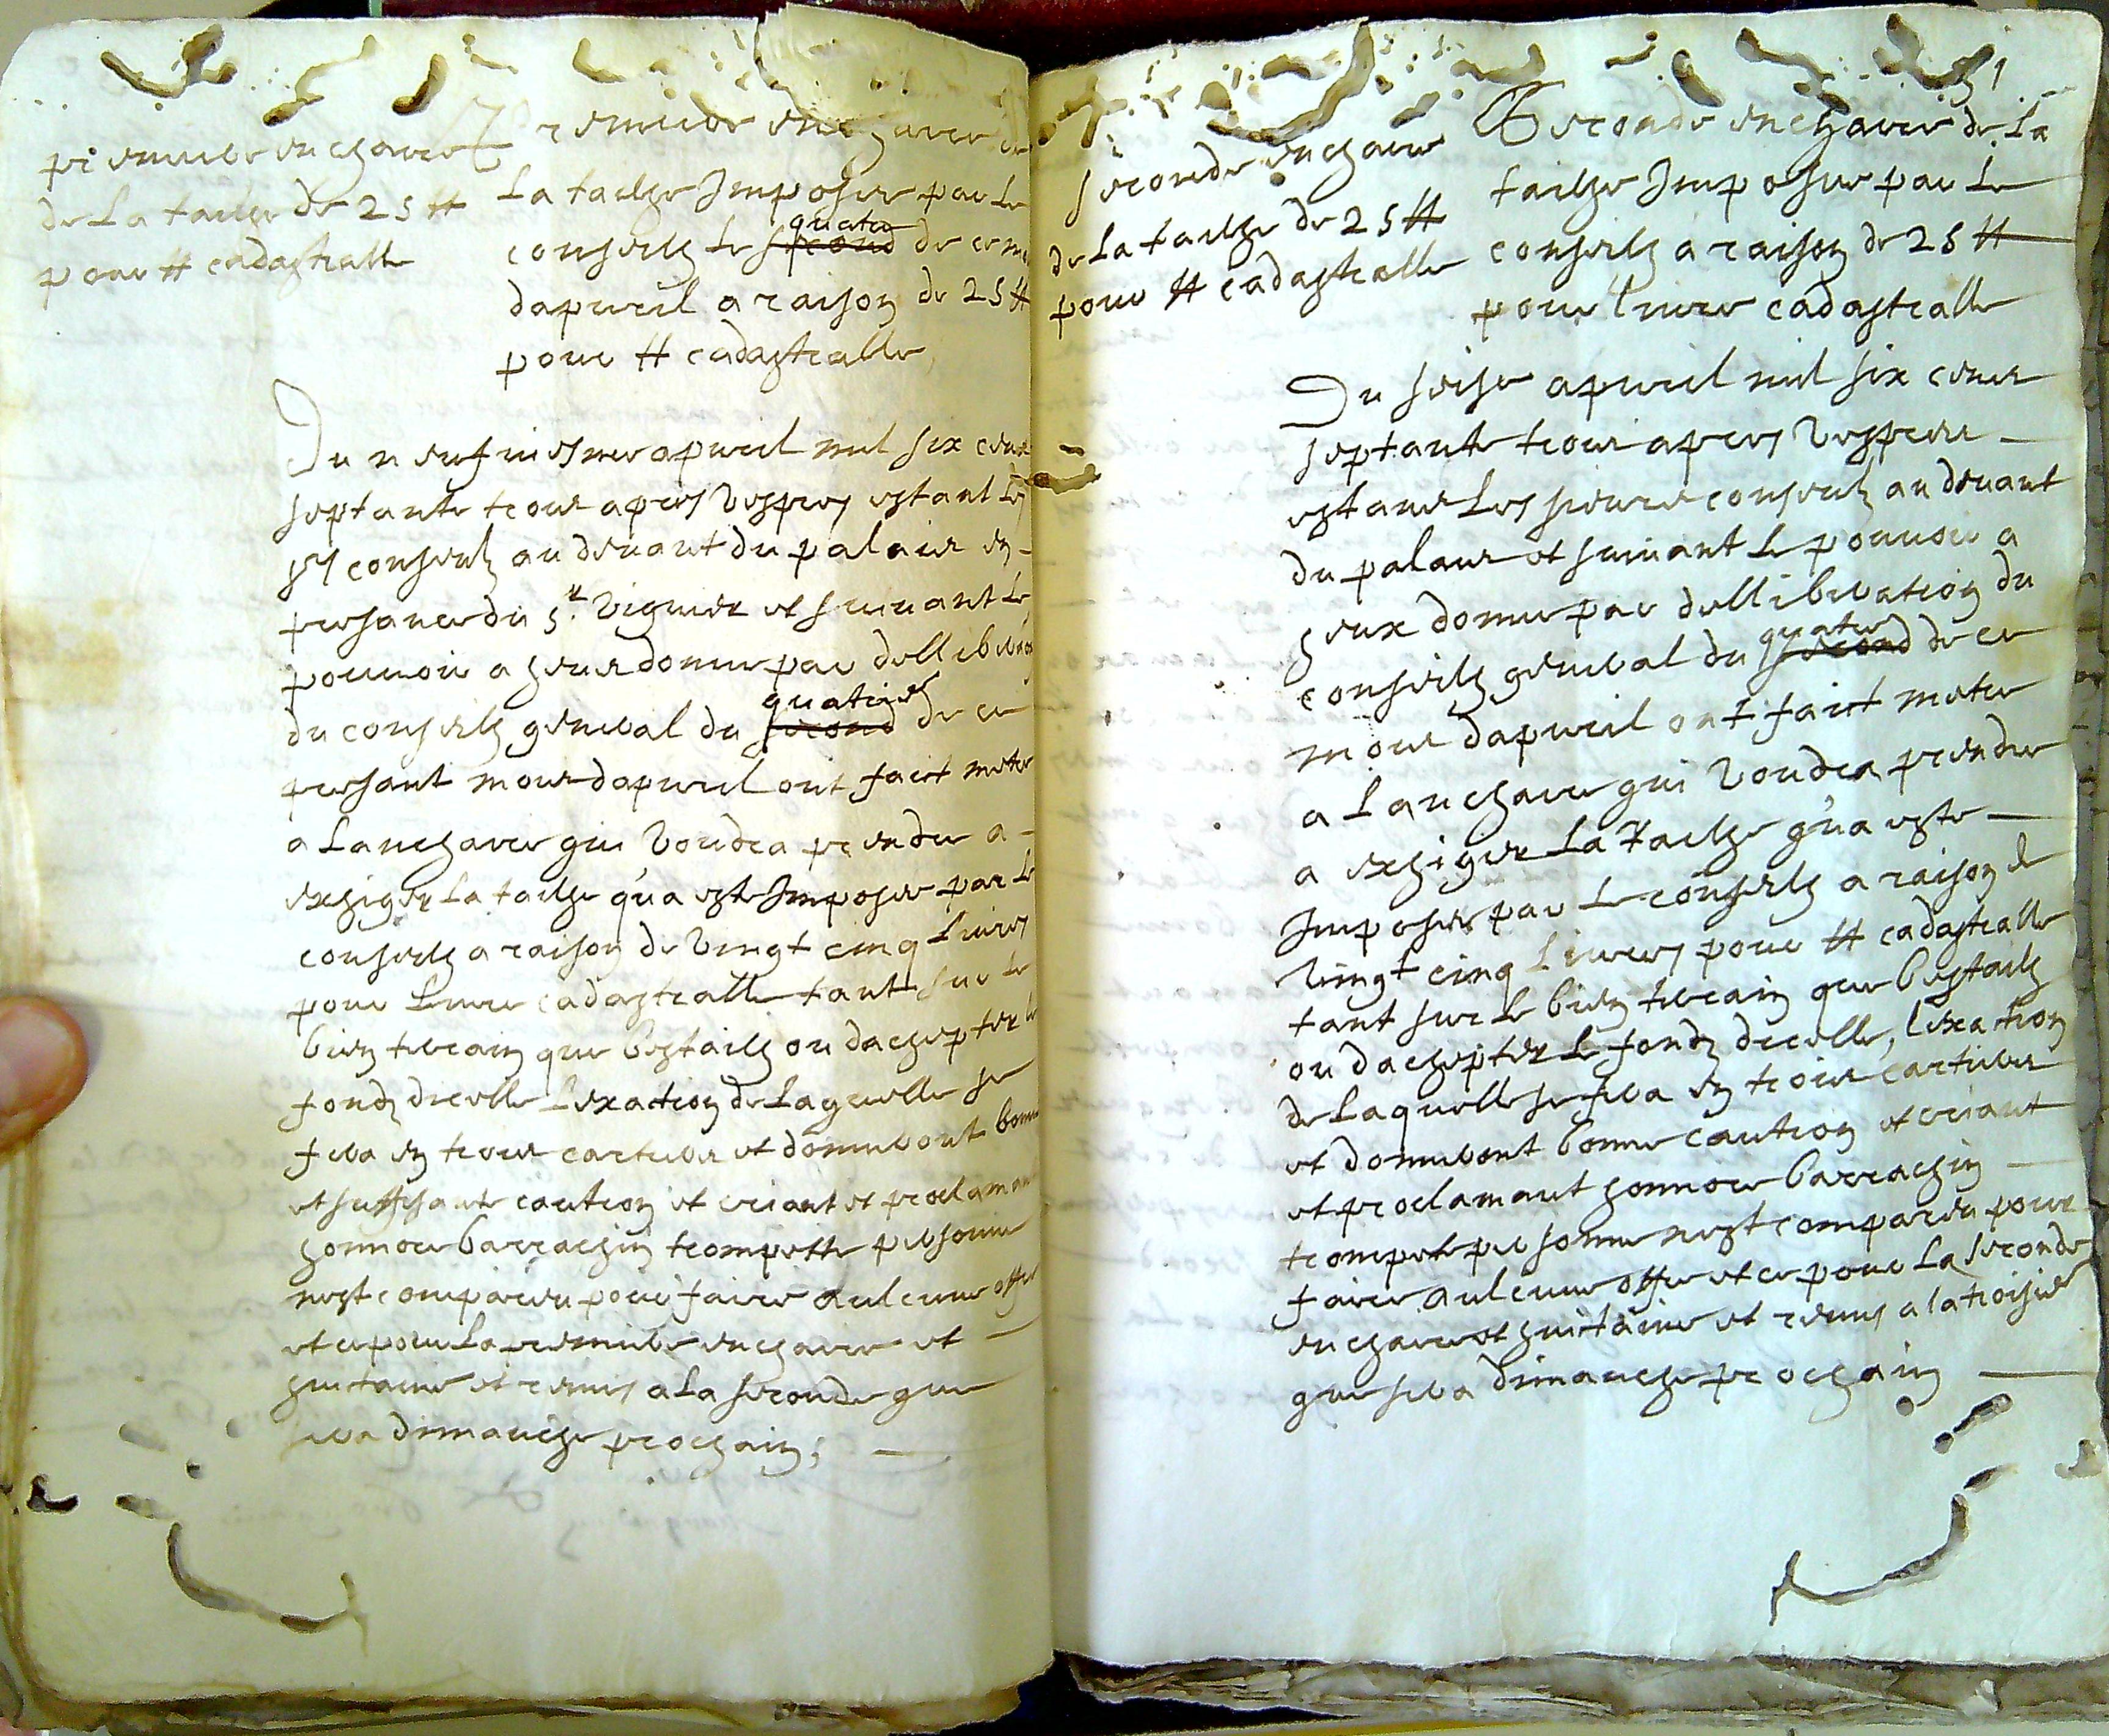 premiere enchaere
de la tailhe de 25 ₶
pour ₶ cadastralle
Premiere enchaere de
la tailhe Imposee par le
conseilh le s̶e̶c̶o̶n̶d̶ quatre de ce mois
dapvril a raison de 25 ₶
pour ₶ cadastralle
Du neufviesme apvril mil six cens
septante trois apres vespres estant les
srs consulz au devant du palais en
presance du sr. viguier et suivant le
pouvoir a heux donne par delliberation
du conseilh general du s̶e̶c̶o̶n̶d̶ quatries de ce
presant mois dapvril ont faict metre
a lanchere qui voudra prendre a
exhiger la tailhe qu'a este Imposee par le
conseilh a raison de vingt cinq livres
pour livre cadastralle tant sur le
bien terrain que bestailh ou dachepter le
fondz dicelle Lexaction de laquelle se
fera en trois cartiers et donneront bonne
et suffisante caution et criant et proclamant
honnore barrachin trompette personne
nest comparue pour faire aulcune offre
et ce pour la premiere enchaere et
huitaine et remis a la seconde que
sera dimanche prochain;
51
seconde enchaere
de la tailhe de 25 ₶
pour ₶ cadastralle
Seconde enchaere de la
tailhe Imposee par le
conseilh a raison de 25 ₶
pour livre cadastralle
Du seise apvril mil six cens
septante trois apres vespres
estans les sieurs consulz au devant
du palais et suivant le pouvoir a
heux donne par delliberation du
conseilh general du s̶e̶c̶o̶n̶d̶ quatre de ce
mois dapvril ont faict metre
a lanchere qui voudra prendre
a exhiger la tailhe qu'a este
Imposee par le conseilh a raison de
vingt cinq livres pour ₶ cadastralle
tant sur le bien terrain que bestailh
ou dachepter le fondz dicelle, lexaction
de laquelle se fera en trois cartiers
et donneront bonne caution et criant
et proclamant honnore barrachin
trompete personne nest comparu pour
faire aulcune offre et ce pour la seconde
enchaere et huictaine et remis a la troisies
que sera dimanche prochain